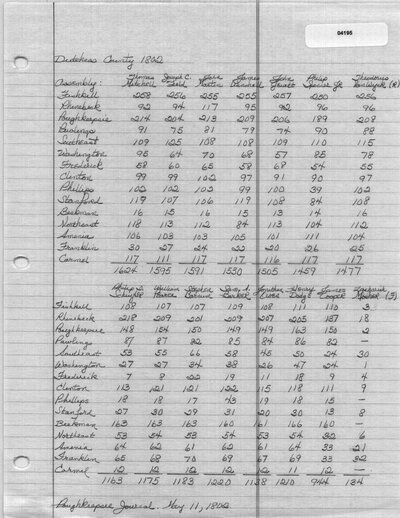 04195
Dutchess County 1802
Thomas Joseph C. James John Philip Theodorus
Assembly: Mitchell Field Martin Jewett Spencer Jr VanWyck (R)
Fishkill 258 256 255 255 257 230 256
Rhinebeck 92 94 117 95 92 96 96
Poughkeepsie 214 204 213 209 206 189 208
Pawlings 91 75 81 79 74 90 88
Southeast 109 125 108 108 109 110 115
Washington 95 64 70 68 57 85 78
Frederick 58 60 65 58 68 54 55
Clinton 99 99 102 97 91 90 97
Phillips 102 102 102 99 100 39 102
Stanford 117 107 106 119 108 84 108
Beekman 16 15 16 15 13 14 16
Northeast 118 113 112 84 113 104 112
Amenia 106 103 103 105 101 111 104
Franklin 30 27 24 22 20 26 25
Carmel 117 111 117 117 116 117 117
1624 1595 1591 1530 1505 1459 1477
Philip J. William Stephen Jonathan Henry James
Schuyler Pearce Barker Dodge Cooper (F)
Fishkill 108 107 107 109 108 111 110 3
Rhinebeck 218 209 201 209 207 205 157 18
Poughkeepsie 148 154 150 149 149 163 150 2
Pawlings 87 87 32 85 84 86 82 —
Southeast 53 55 66 58 45 50 24 30
Washington 27 27 34 38 26 47 24 1
Frederick 7 8 22 19 11 18 9 4
Clinton 113 121 121 122 115 118 111 9
Phillips 18 18 17 43 19 18 15 —
Stanford 27 30 29 31 20 30 13 8
Beekman 163 163 163 160 161 166 160 —
Northeast 53 54 53 54 53 54 32 6
Amenia 64 62 61 62 61 64 33 21
Franklin 65 68 70 69 67 69 33 32
Carmel 12 12 12 12 12 11 12 —
1163 1175 1183 1220 1138 1210 944 134
Poughkeepsie Journal. May 11, 1802